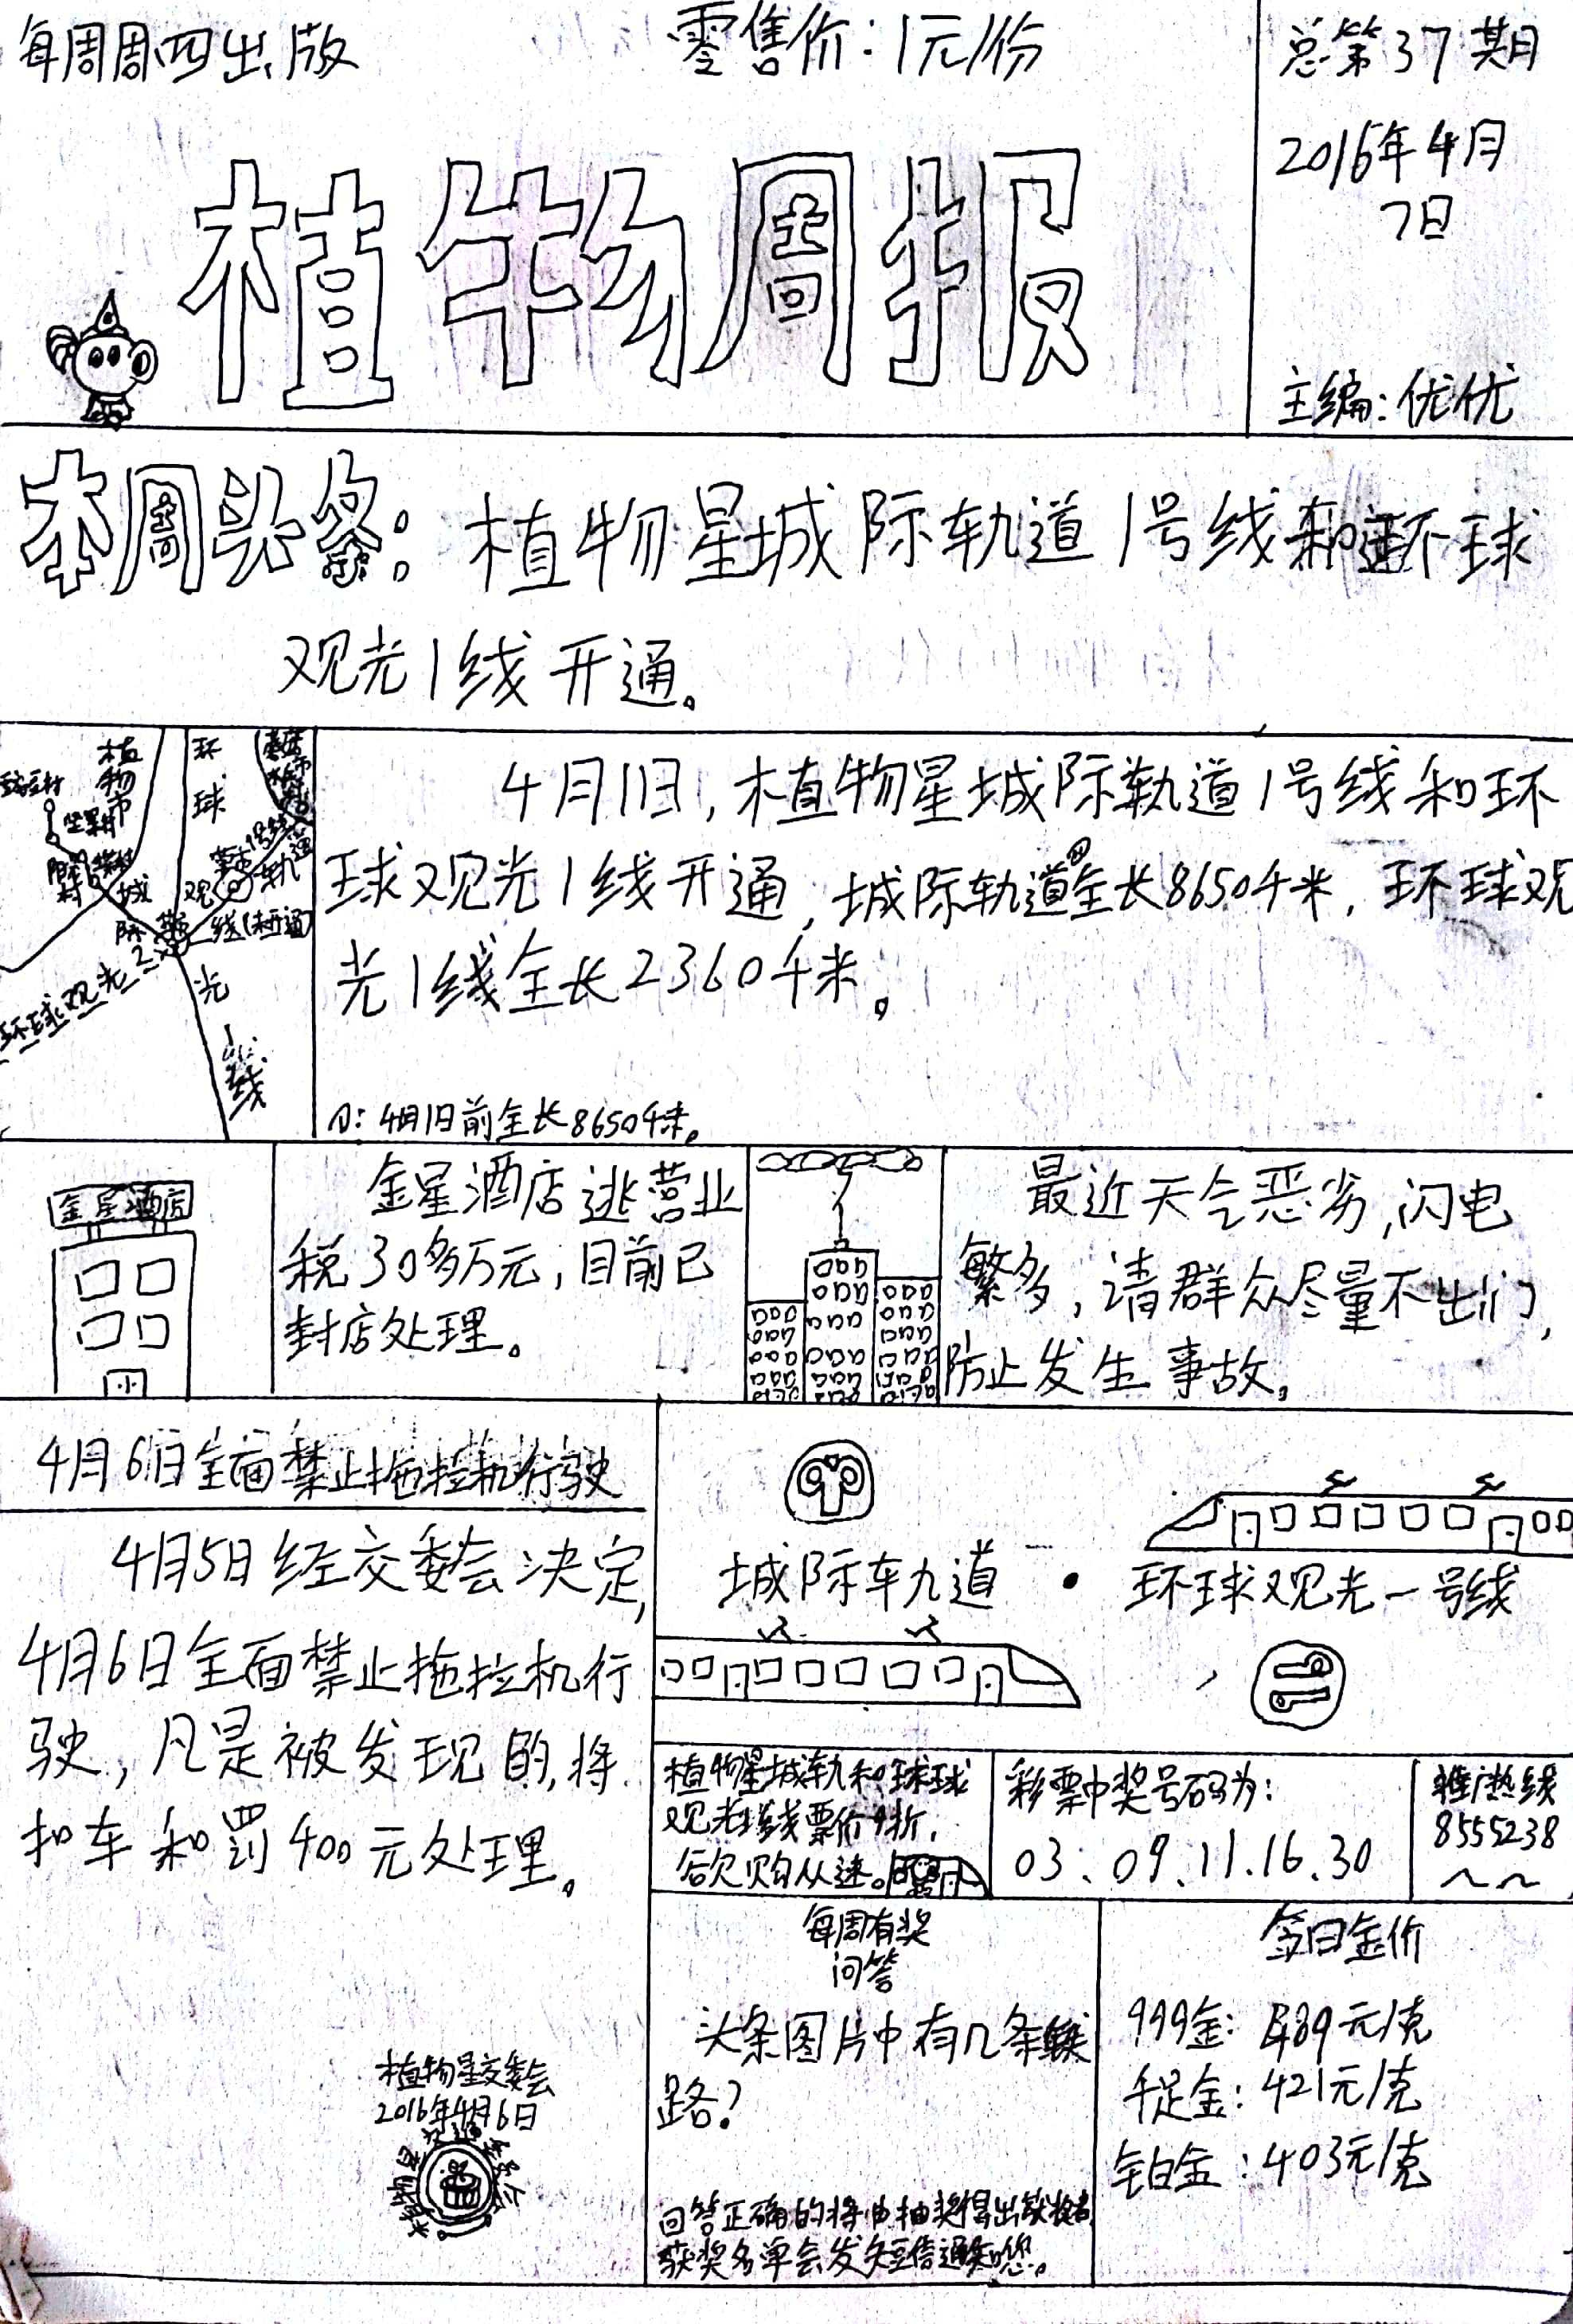 每周周四出版
零售价：1元/份
总第37期
2016年4月
7日
植物周报
主编：优优
本周头条：植物星城际轨道1号线和环球
观光1线开通。
植物市
环球观光1线
环球观光2线
4月1日，植物星城际轨道1号线和环
球观光1线开通，城际轨道①全长8650千米，环球观
光1线全长2360千米。
①：4月1日前全长8650千米。
金星酒店
金星酒店逃营业
税30多万元，目前已
封店处理。
最近天气恶劣，闪电
繁多，请群众尽量不出门，
防止发生事故。
4月6日全面禁止拖拉机行驶
4月5日经交委会决定，
4月6日全面禁止拖拉机行
驶，凡是被发现的，将
扣车和罚400元处理。
植物星交委会
2016年4月6日
城际轨道 · 环球观光一号线
植物星城轨和环球
观光1线票价9折，
欲购从速。
彩票中奖号码为：
03.09.11.16.30
推广热线
8555238
每周有奖
问答
头条图片中有几条线
路？
回答正确的将由抽奖得出获奖者，
获奖名单会发短信通知您。
今日金价
999金：489元/克
千足金：421元/克
铂金：403元/克